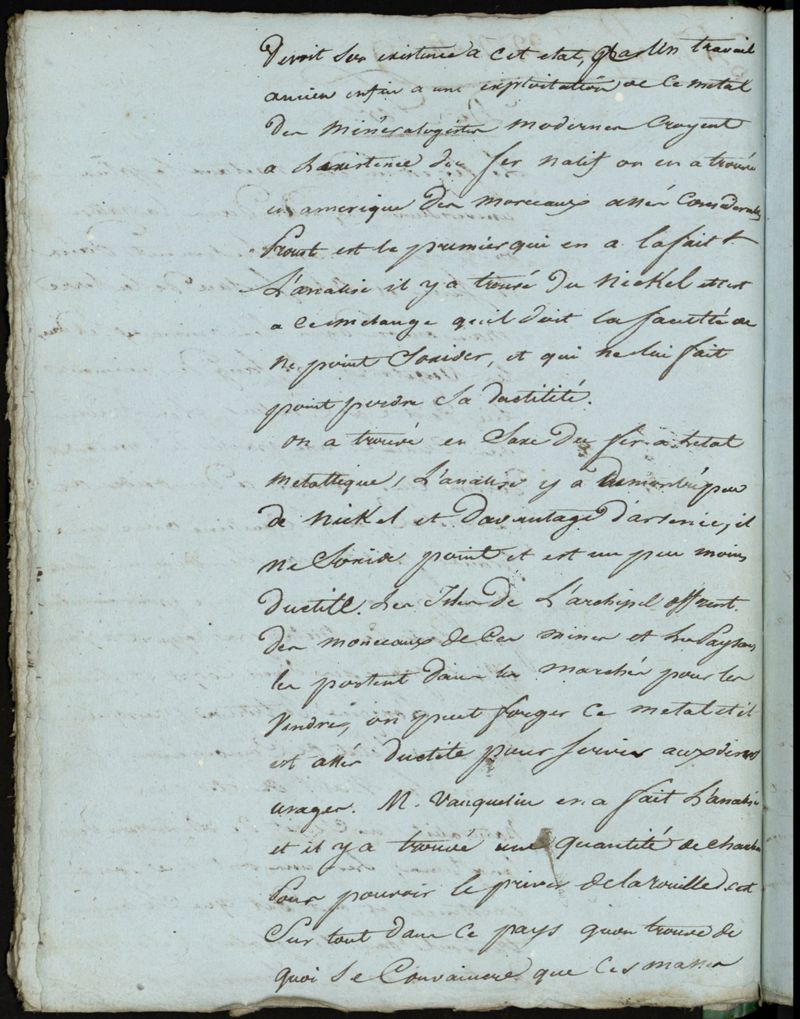 devoit son existence a cet etat, par un travail
ancien enfin a une exploitation de ce metal
des minéralogistes modernes croyent
a l'existence du fer natif on en a trouvé
en amerique des morceaux assés considerables
Proust est le premier qui en a la fait
L'analise il y a trouvé du Nickel et c'est
a ce melange qu'il doit la faculté de
ne point s'oxider, et qui ne lui fait
point perdre sa ductilité.
on a trouvé en Saxe du fer a l'etat
metallique, L'analise y a demontré peu
de Nickel et d'avantage d'arsenic, il
ne s'oxide point et est un peu moins
ductile. Les Isles de L'archipel offrent
des morceaux de ces mines et les Paysans
les portent dans les marchés pour les
vendre, on peut forger ce metal et il
est assés ductile pour servir aux divers
usages. M. Vauquelin en a fait L'analise
et il y a trouvé une quantité de charbon
pour pouvoir le priver de la rouille. c'est
sur tout dans ce pays qu'on trouve de
quoi se convaincre que ces masses